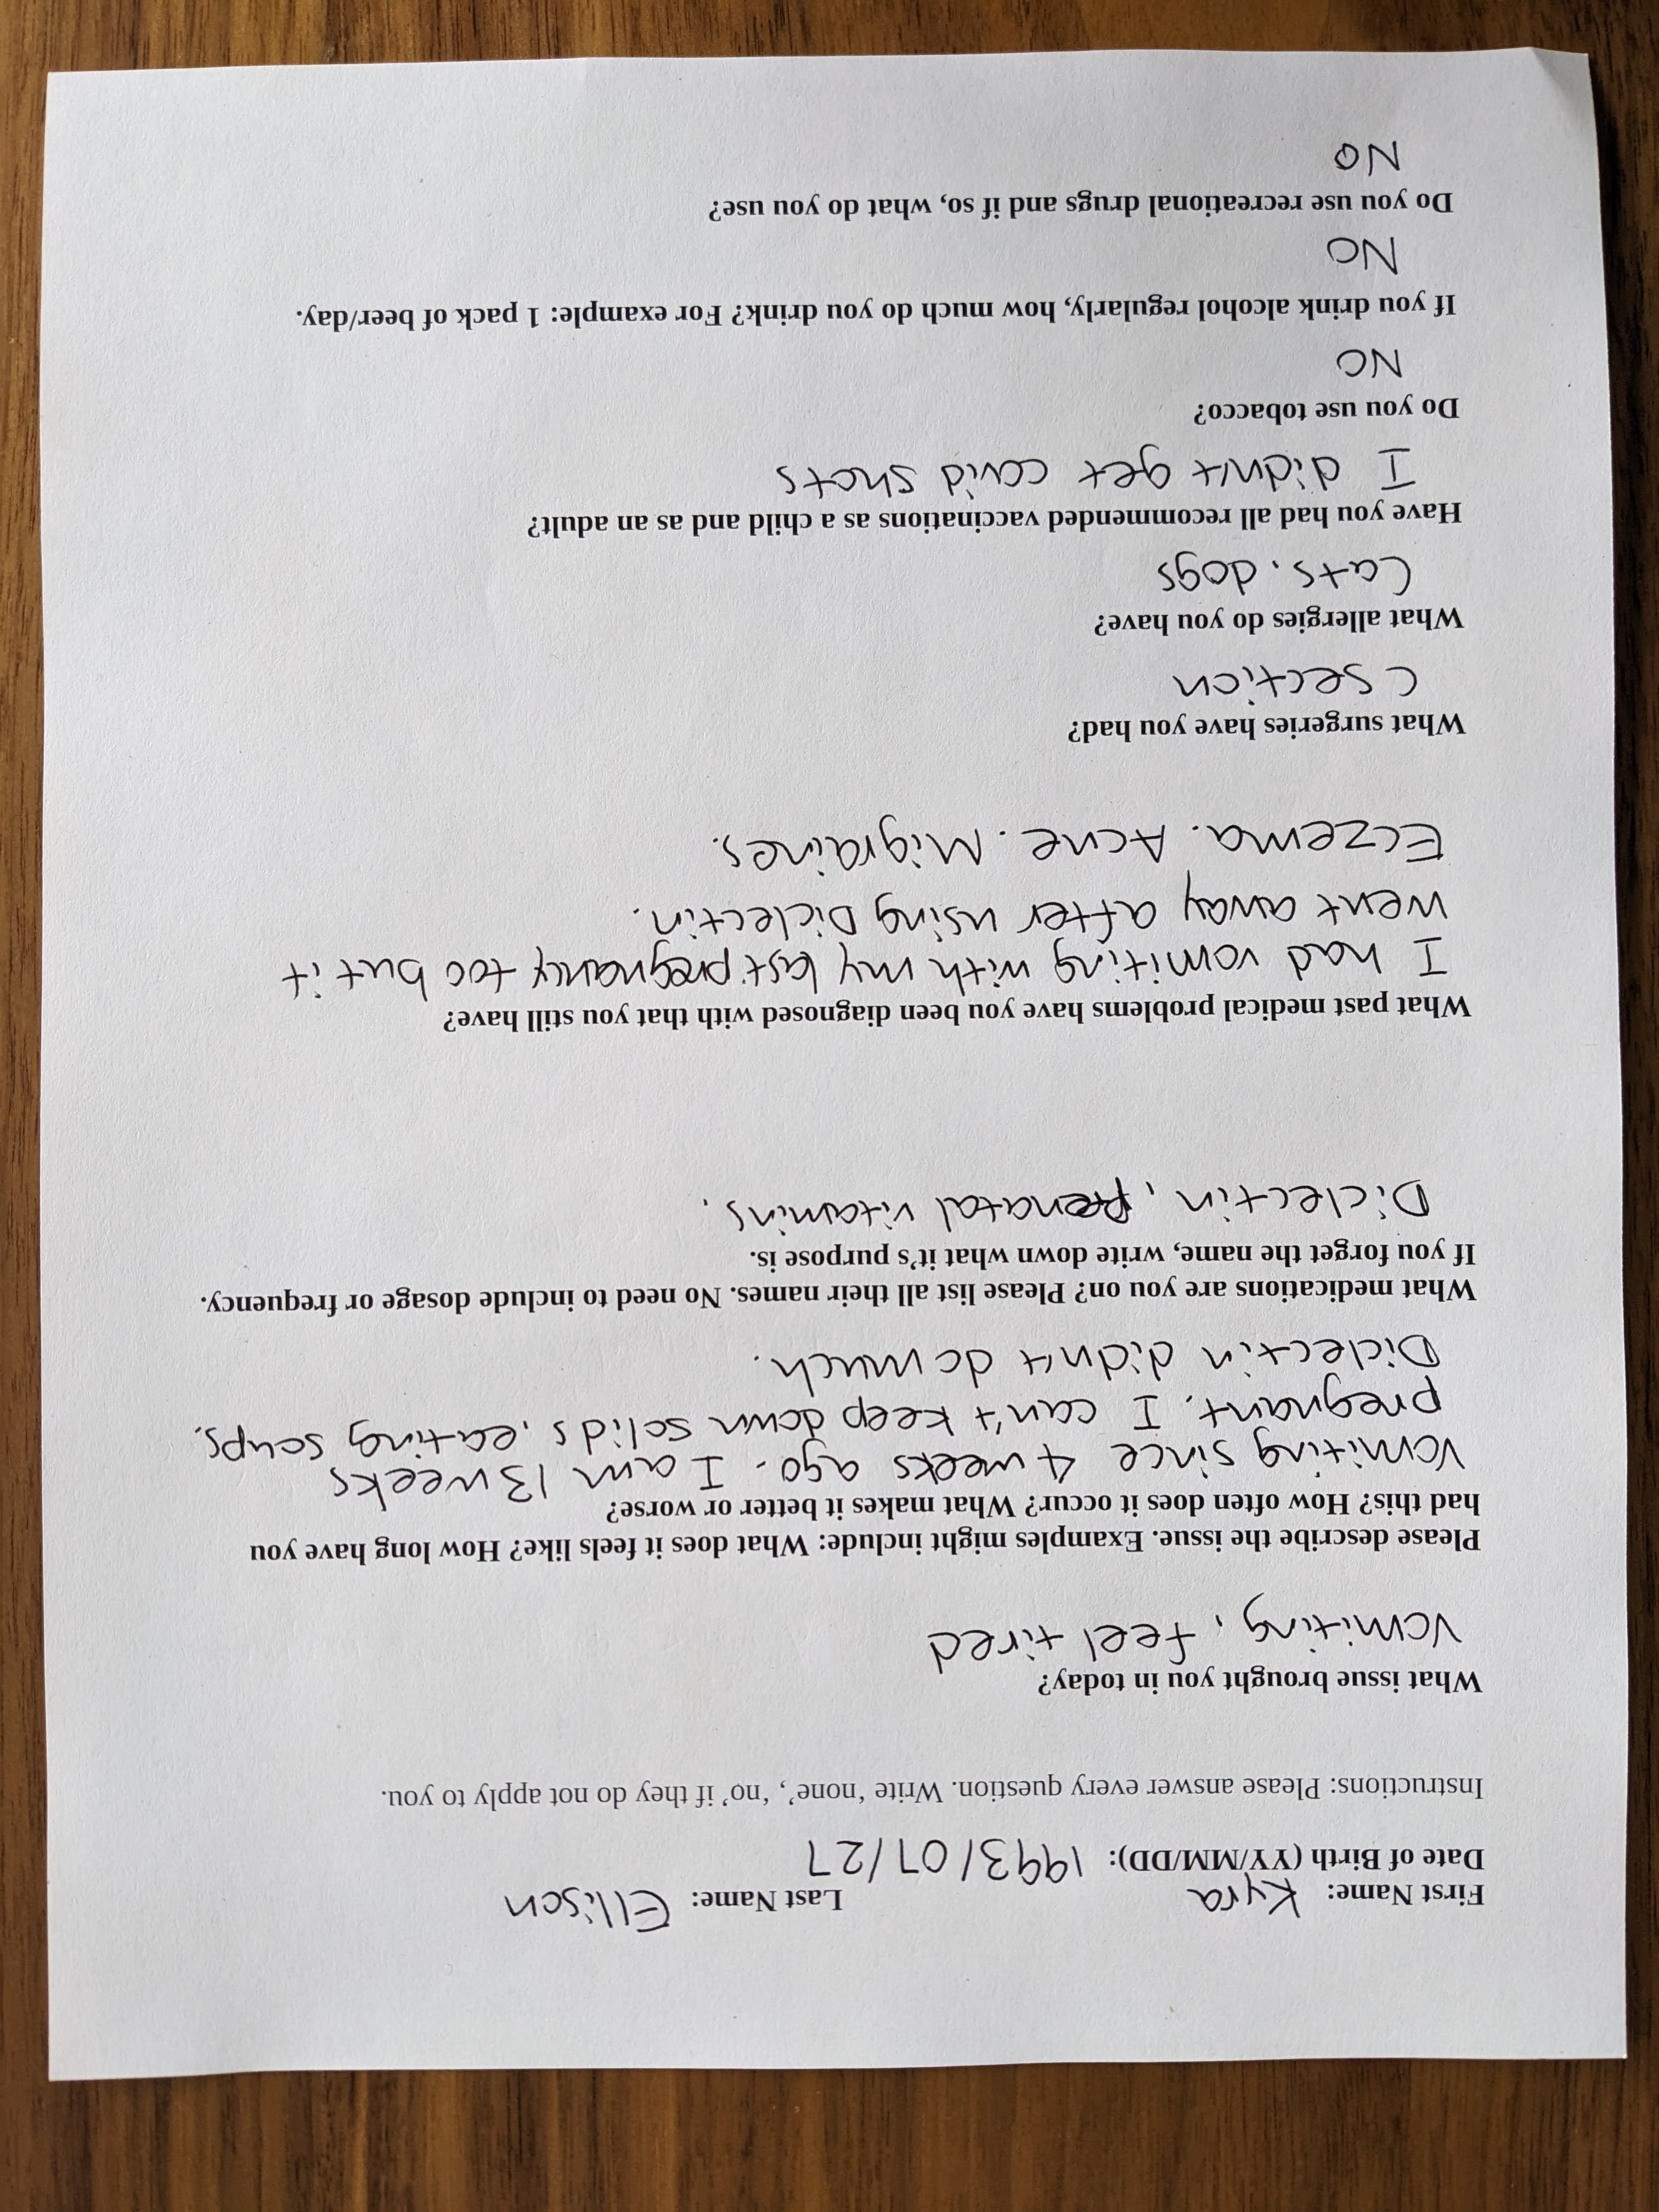 First Name: Kyra Last Name: Ellison
Date of Birth (YY/MM/DD): 1993/07/27
Instructions: Please answer every question. Write ‘none’, ‘no’ if they do not apply to you.
What issue brought you in today?
Vomiting, feel tired
Please describe the issue. Examples might include: What does it feels like? How long have you
had this? How often does it occur? What makes it better or worse?
Vomiting since 4 weeks ago. I am 13 weeks
pregnant. I can't keep down solids, eating soups.
Diclectin didn't do much.
What medications are you on? Please list all their names. No need to include dosage or frequency.
If you forget the name, write down what it’s purpose is.
Diclectin, prenatal vitamins.
What past medical problems have you been diagnosed with that you still have?
I had vomiting with my last pregnancy too but it
went away after using Diclectin.
Eczema. Acne. Migraines.
What surgeries have you had?
C section
What allergies do you have?
Cats. dogs
Have you had all recommended vaccinations as a child and as an adult?
I didn't get covid shots
Do you use tobacco?
NO
If you drink alcohol regularly, how much do you drink? For example: 1 pack of beer/day.
NO
Do you use recreational drugs and if so, what do you use?
NO